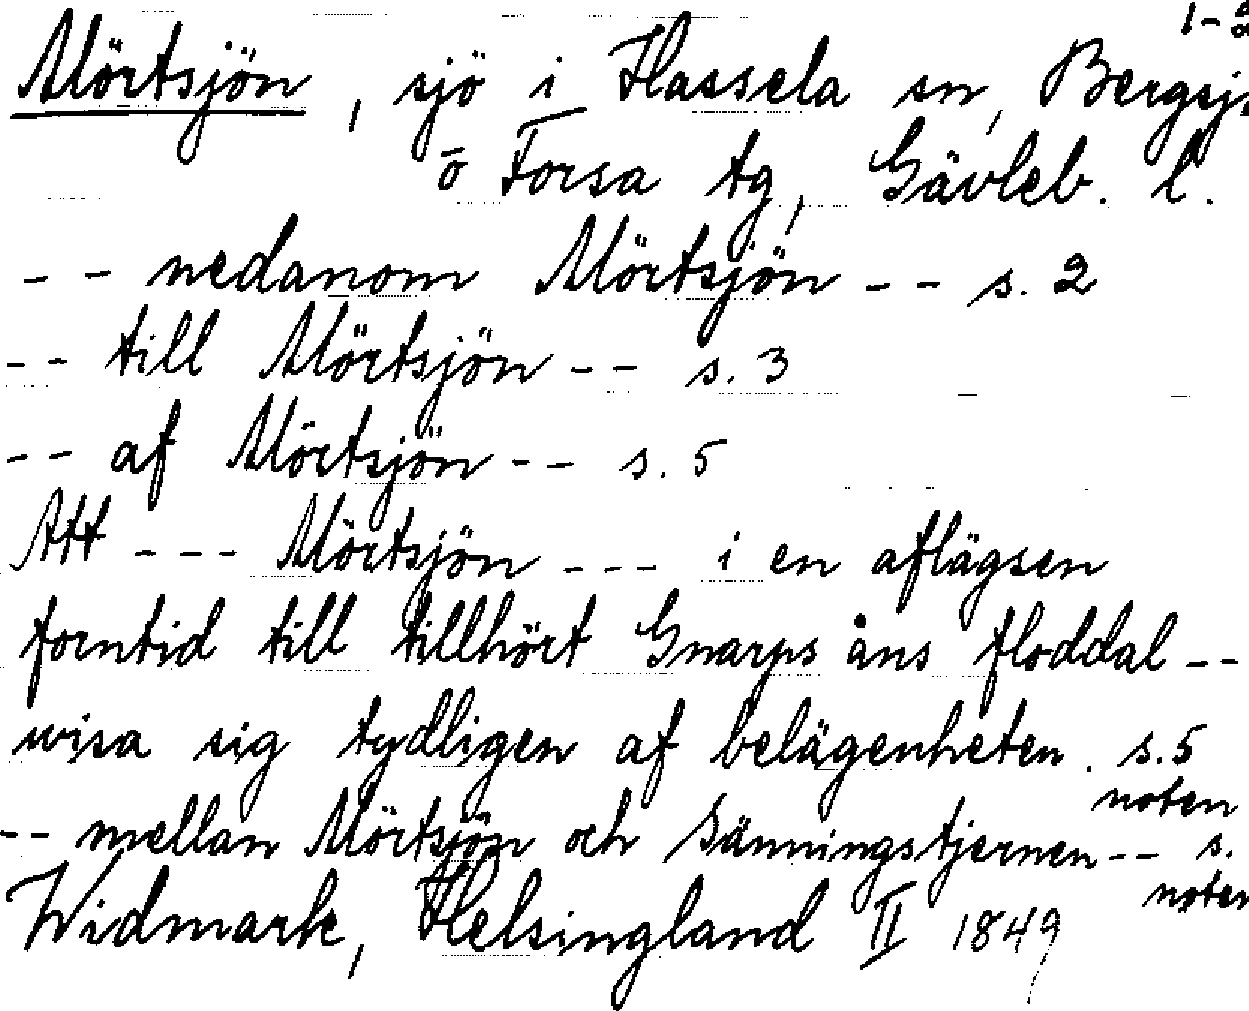 1-2
Mörtsjön, sjö i Hassela sn, Bergsjö
o Forsa tg, Gävleb. l.
-- nedanom Mörtsjön -- s. 2
-- till Mörtsjön -- s. 3
-- af Mörtsjön -- s. 5
Att --- Mörtsjön --- i en aflägsen
forntid till tillhört Gnarps åns floddal --
wisa sig tydligen af belägenheten. s. 5
noten
-- mellan Mörtsjön och Sänningstjernen -- s.
noten
Widmark, Helsingland II 1849